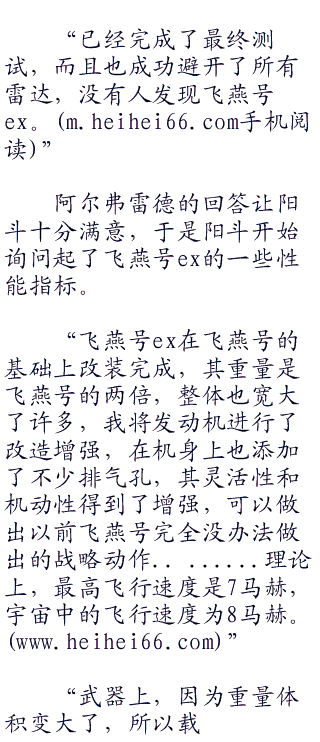 “已经完成了最终测
试，而且也成功避开了所有
雷达，没有人发现飞燕号
ex。(m.heihei66.com手机阅
读)”
阿尔弗雷德的回答让阳
斗十分满意，于是阳斗开始
询问起了飞燕号ex的一些性
能指标。
“飞燕号ex在飞燕号的
基础上改装完成，其重量是
飞燕号的两倍，整体也宽大
了许多，我将发动机进行了
改造增强，在机身上也添加
了不少排气孔，其灵活性和
机动性得到了增强，可以做
出以前飞燕号完全没办法做
出的战略动作.. ......理论
上，最高飞行速度是7马赫，
宇宙中的飞行速度为8马赫。
(www.heihei66.com)”
“武器上，因为重量体
积变大了，所以载